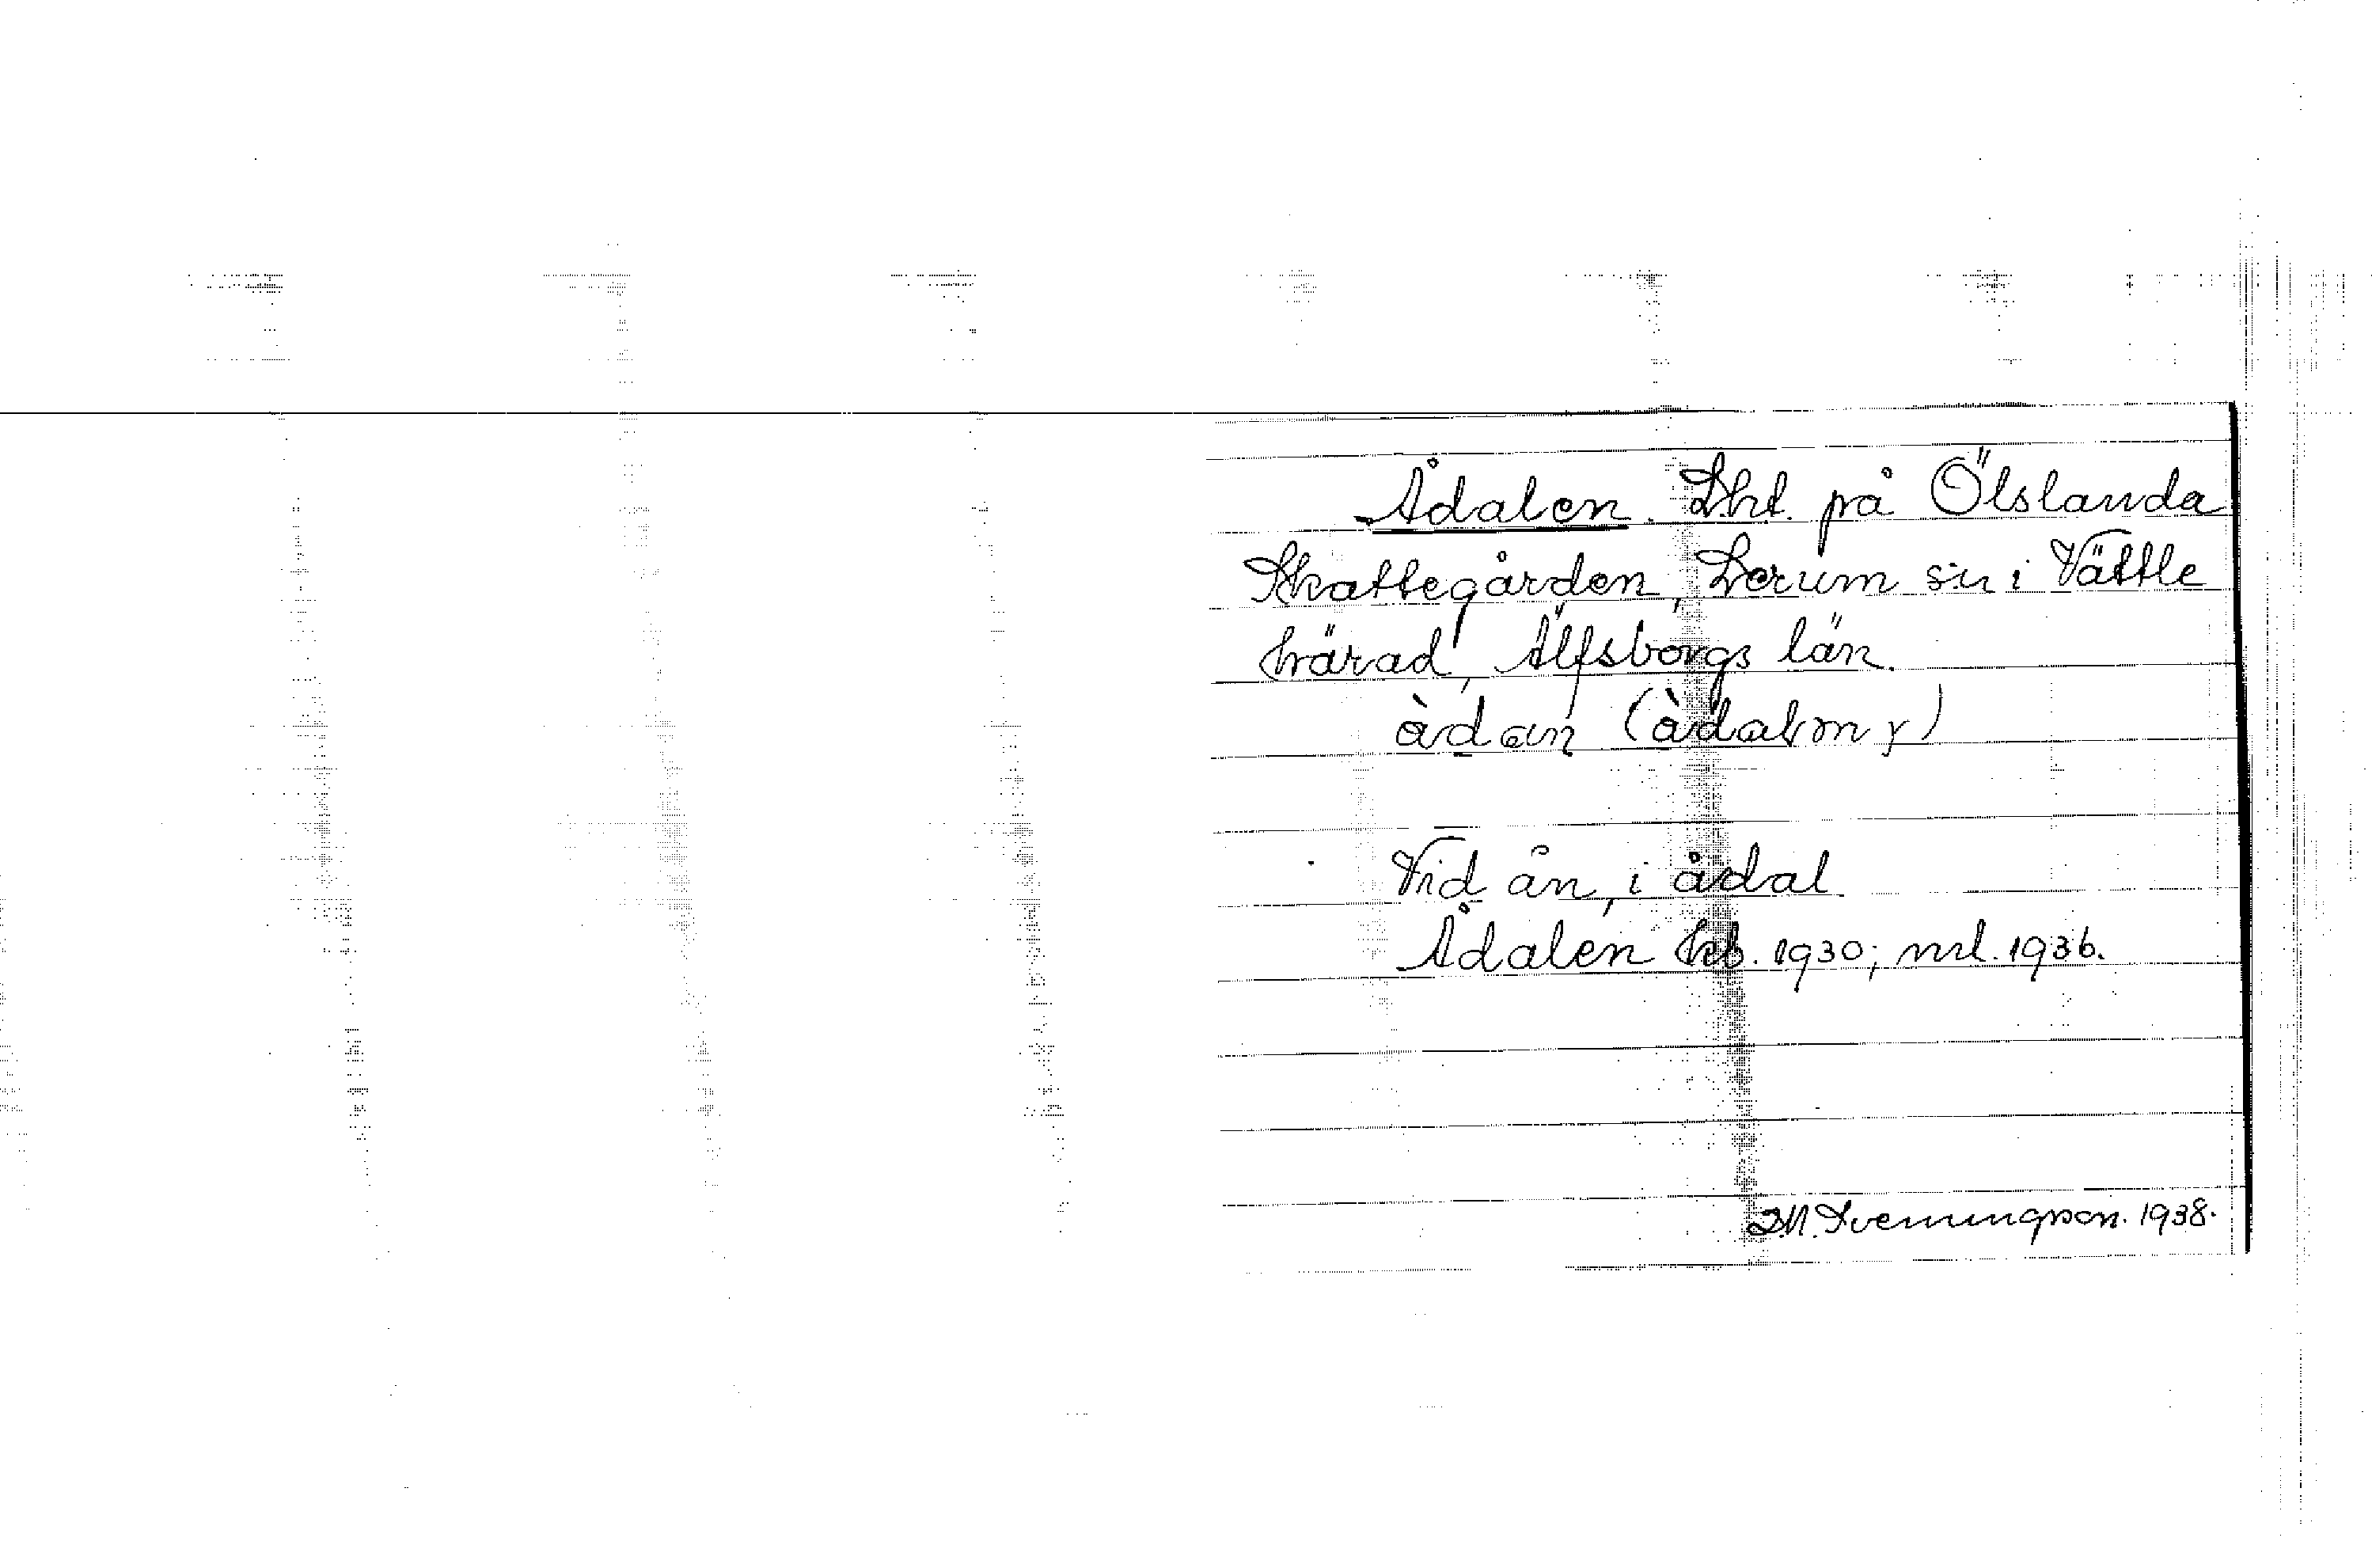 Ådalen. Lht. på Ölslanda
Skattegården, Lerum sn i Vättle
härad, Älfsborgs län.
Vid ån, i ådal
Ådalen hb. 1930; mrl. 1936.
D.N. Svenningson. 1938.